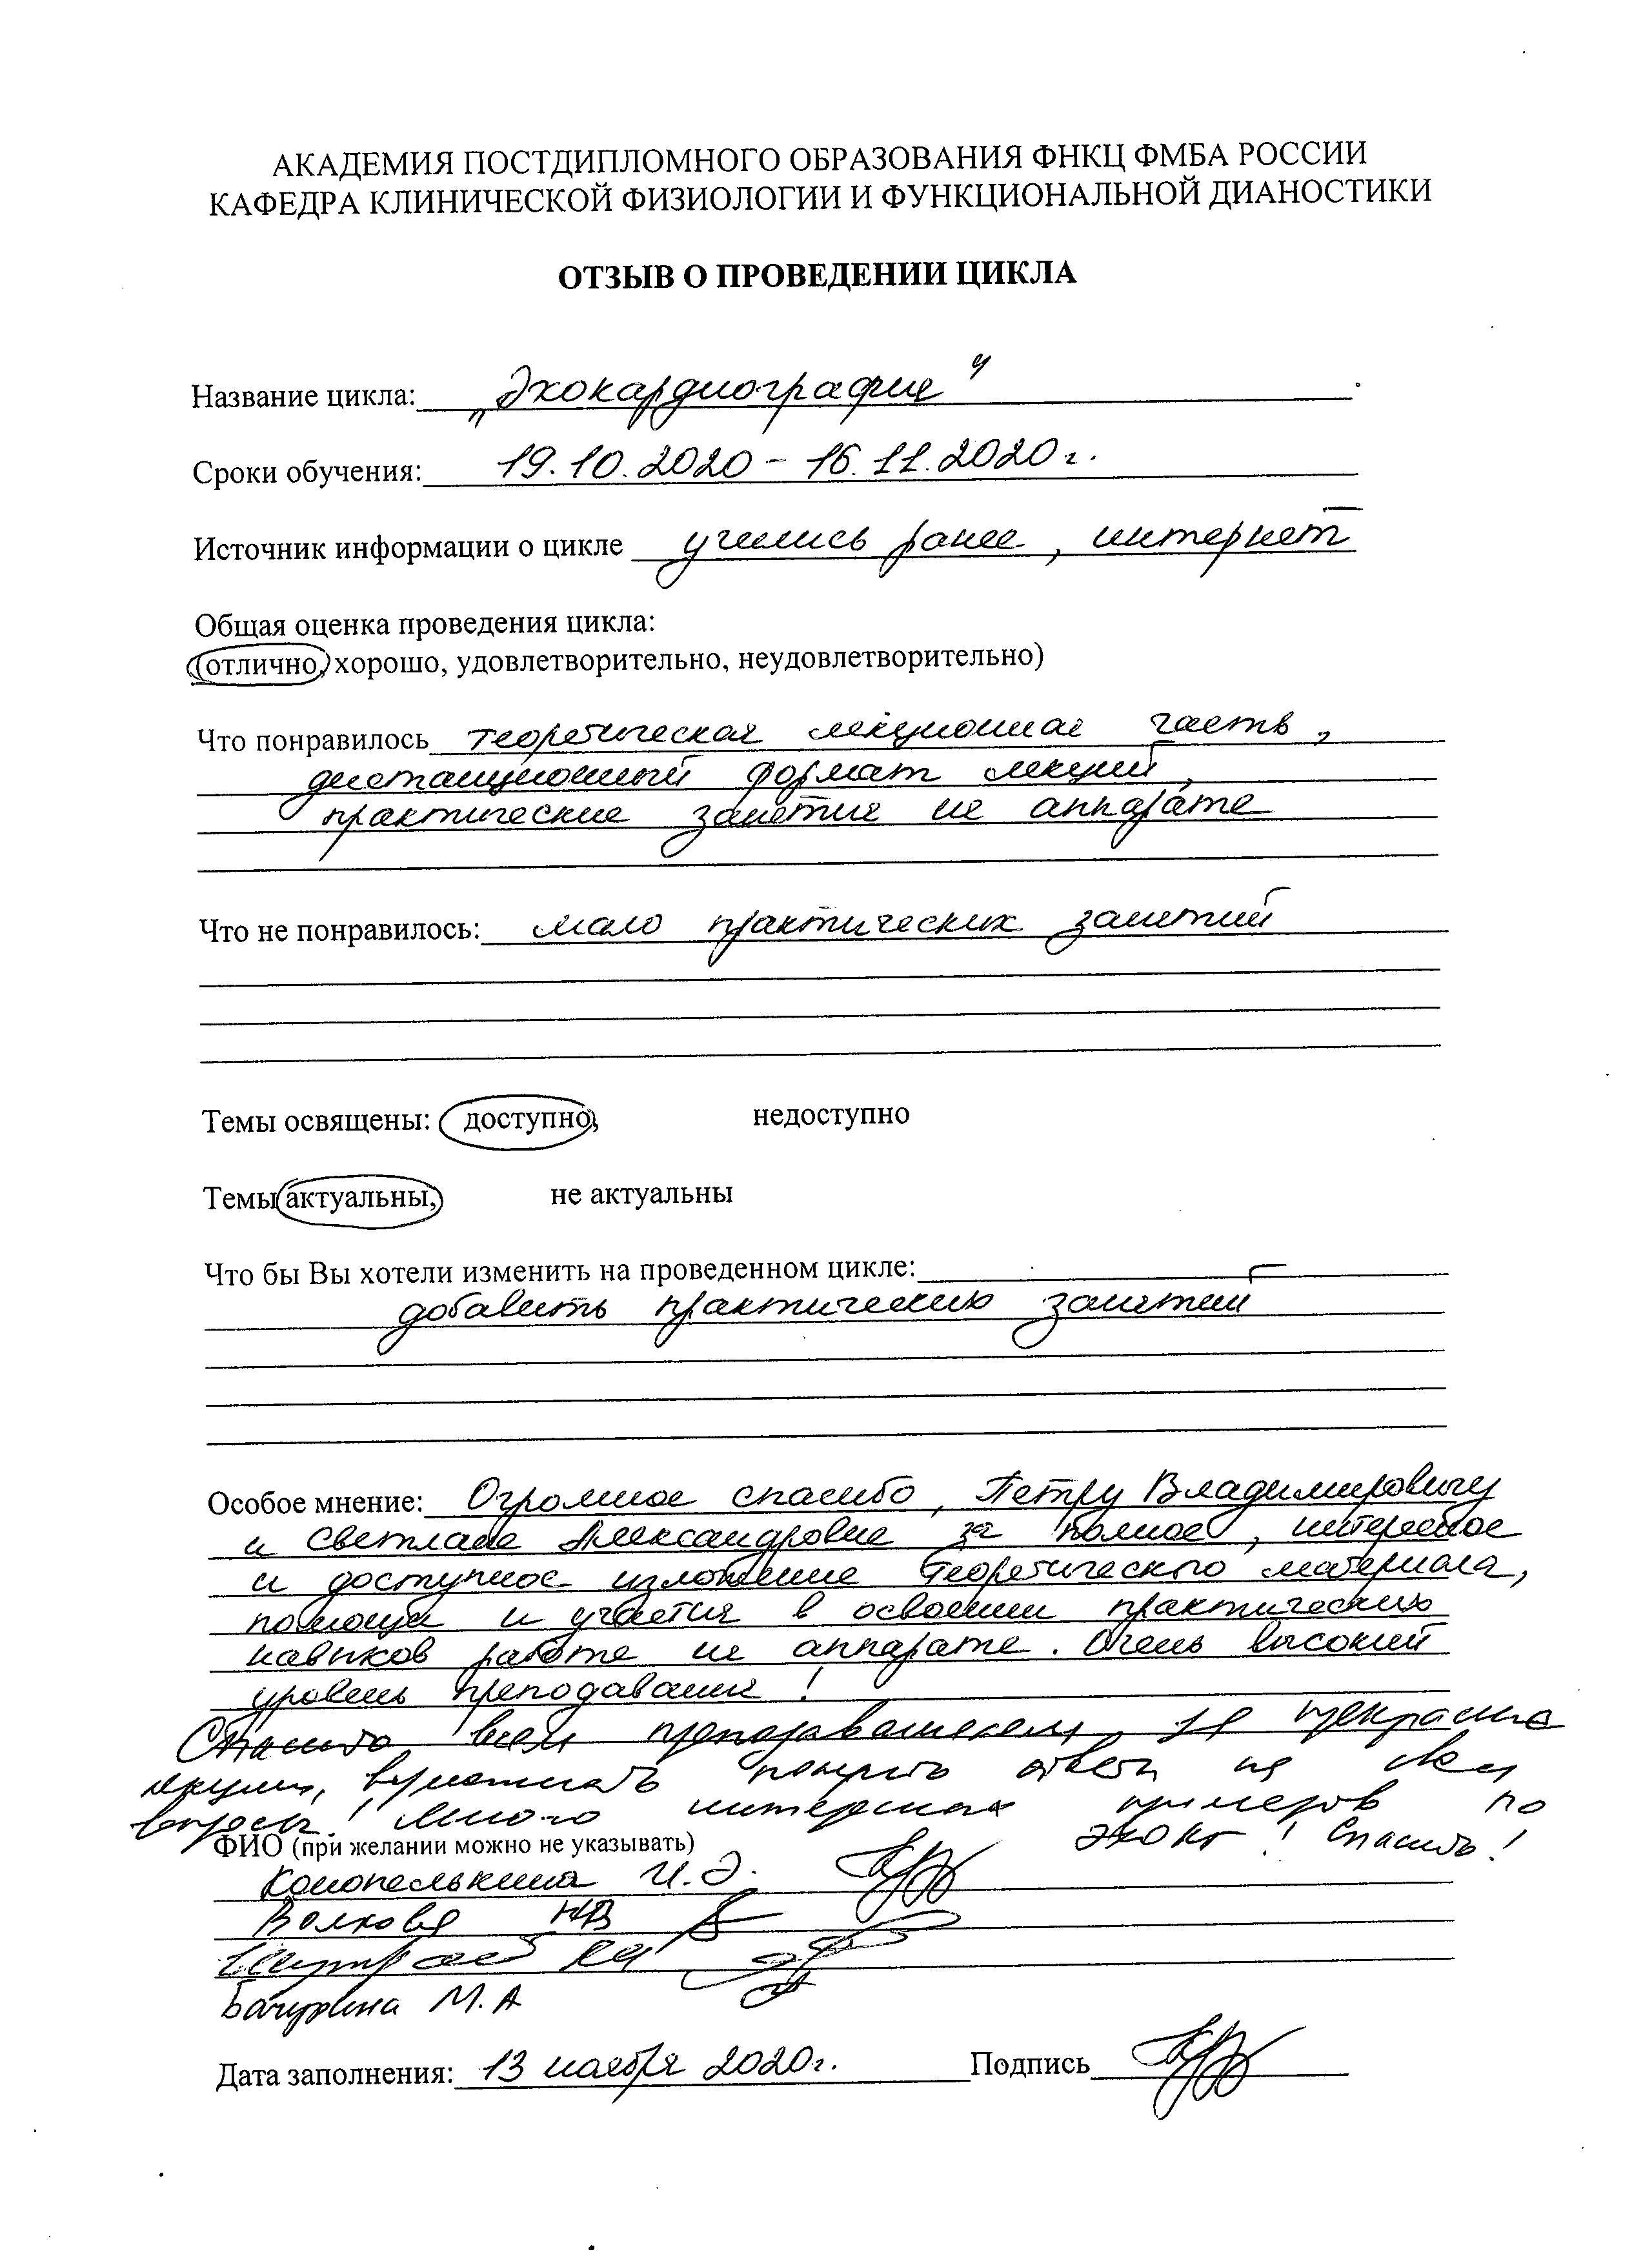 АКАДЕМИЯ ПОСТДИПЛОМНОГО ОБРАЗОВАНИЯ ФНКЦ ФМБА РОССИИ
КАФЕДРА КЛИНИЧЕСКОЙ ФИЗИОЛОГИИ И ФУНКЦИОНАЛЬНОЙ ДИАНОСТИКИ
ОТЗЫВ О ПРОВЕДЕНИИ ЦИКЛА
Название цикла: „Эхокардиография"
Сроки обучения: 19.10.2020 - 16.11.2020 г.
Источник информации о цикле учились ранее, интернет
Общая оценка проведения цикла:
(отлично, хорошо, удовлетворительно, неудовлетворительно)
Что понравилось теоретическая лекционная часть,
дистанционный формат лекций,
практические занятия на аппарате
Что не понравилось: мало практических занятий
Темы освящены: доступно, недоступно
Темы актуальны, не актуальны
Что бы Вы хотели изменить на проведенном цикле:
добавить практических занятий
Особое мнение: Огромное спасибо, Петру Владимировичу
и Светлане Александровне за полное, интересное
и доступное изложение теоретического материала,
помощь и участие в освоении практических
навыков работе на аппарате. Очень высокий
уровень преподавания!
Спасибо всем преподавателям, за прекрасные
лекции, возможность получить ответы на свои
вопросы! Много интересных примеров по
ЭХОКГ! Спасибо!
ФИО (при желании можно не указывать)
Конопелькина И.Э.
Волкова НВ
Бачурина М.А
Дата заполнения: 13 ноября 2020г. Подпись